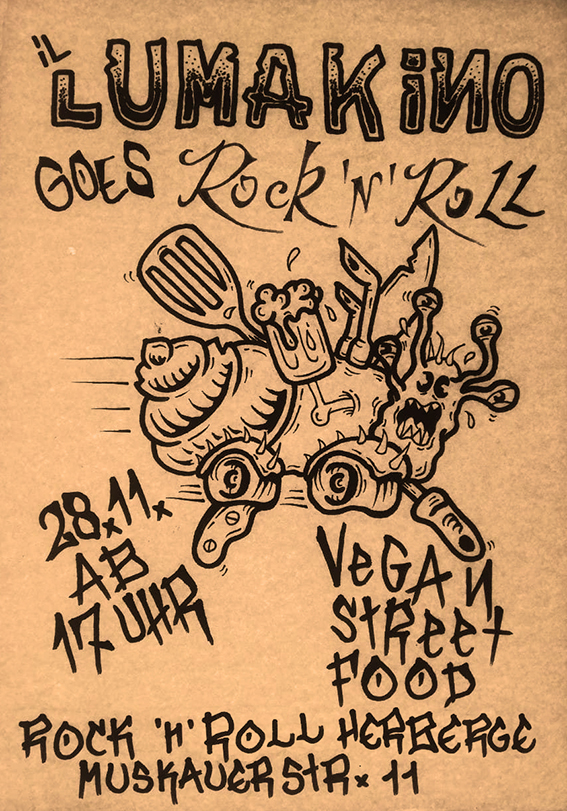 iL
LUMAKiNO
GOES Rock 'N' Roll
28.11.
AB
17 UHR
VeGAN
StReet
FOOD
ROCK 'N' ROLL HERBERGE
MUSKAUER StR. 11